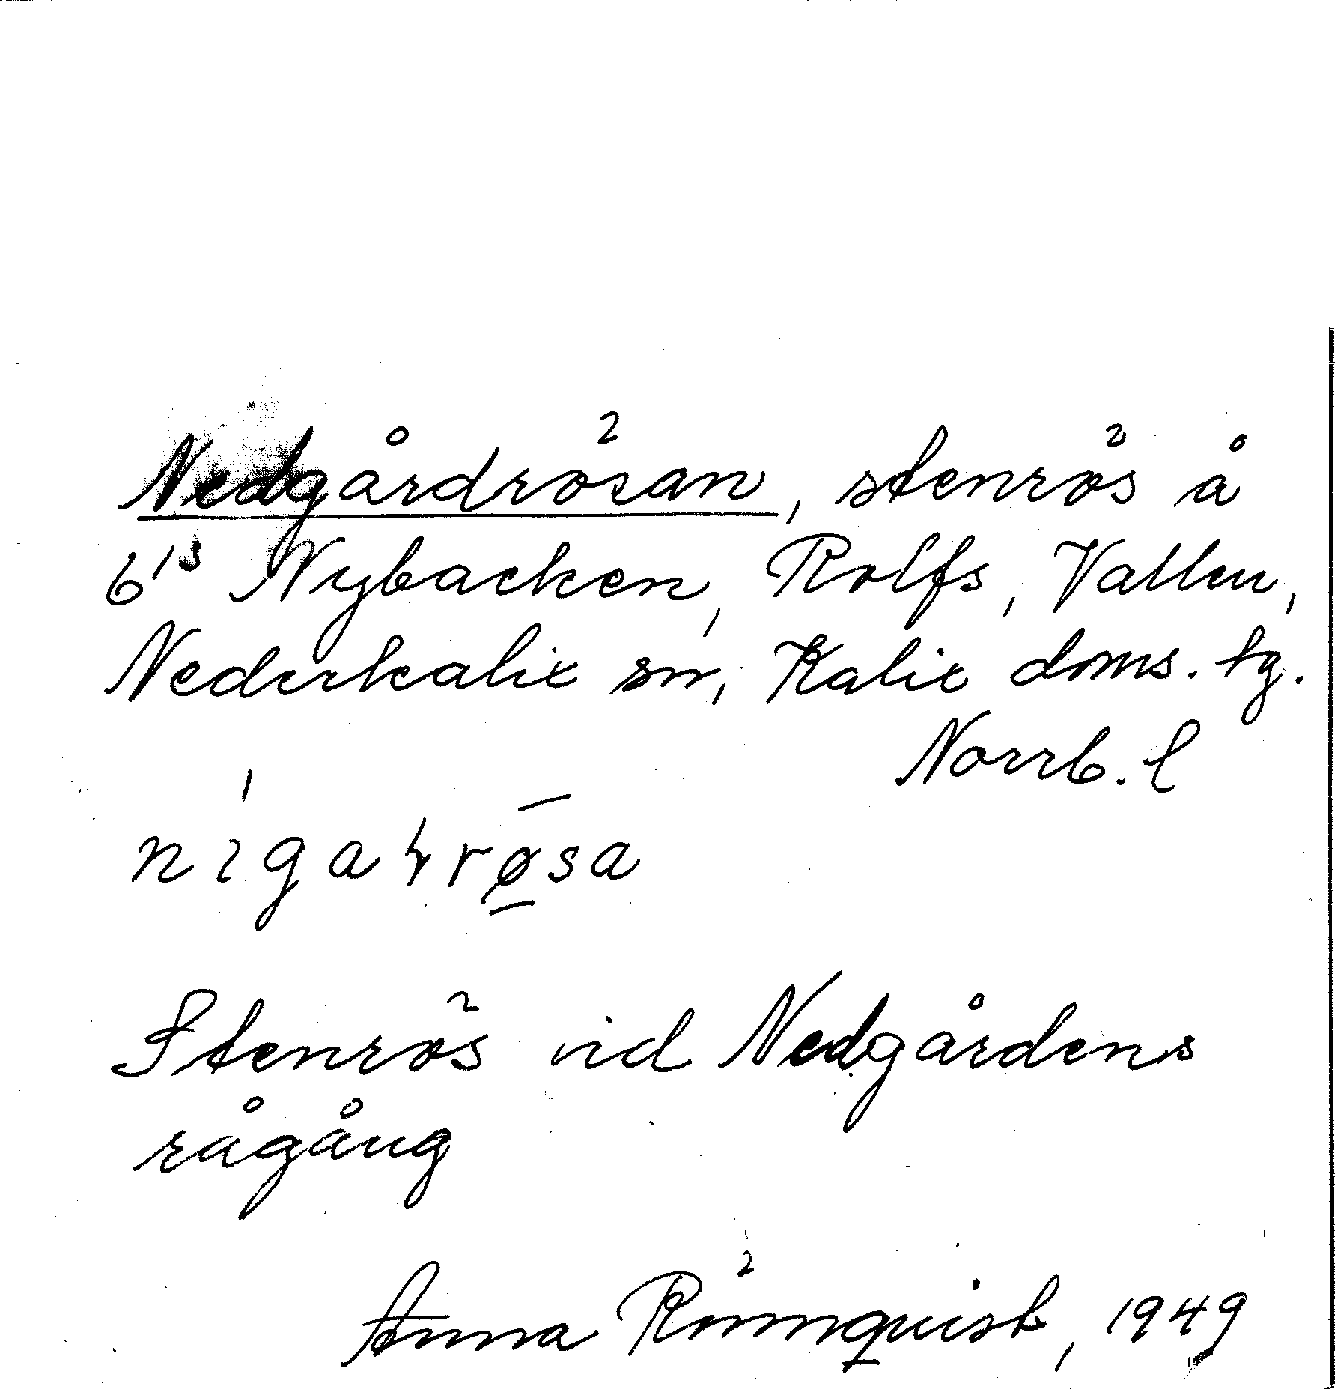 Nedgårdrösan, stenrös å
b's Nybacken, Rolfs, Vallen,
Nederkalix sn, Kalix doms. tg.
Norrb. l
Stenrös vid Nedgårdens
rågång
Anna Rönnquist, 1949